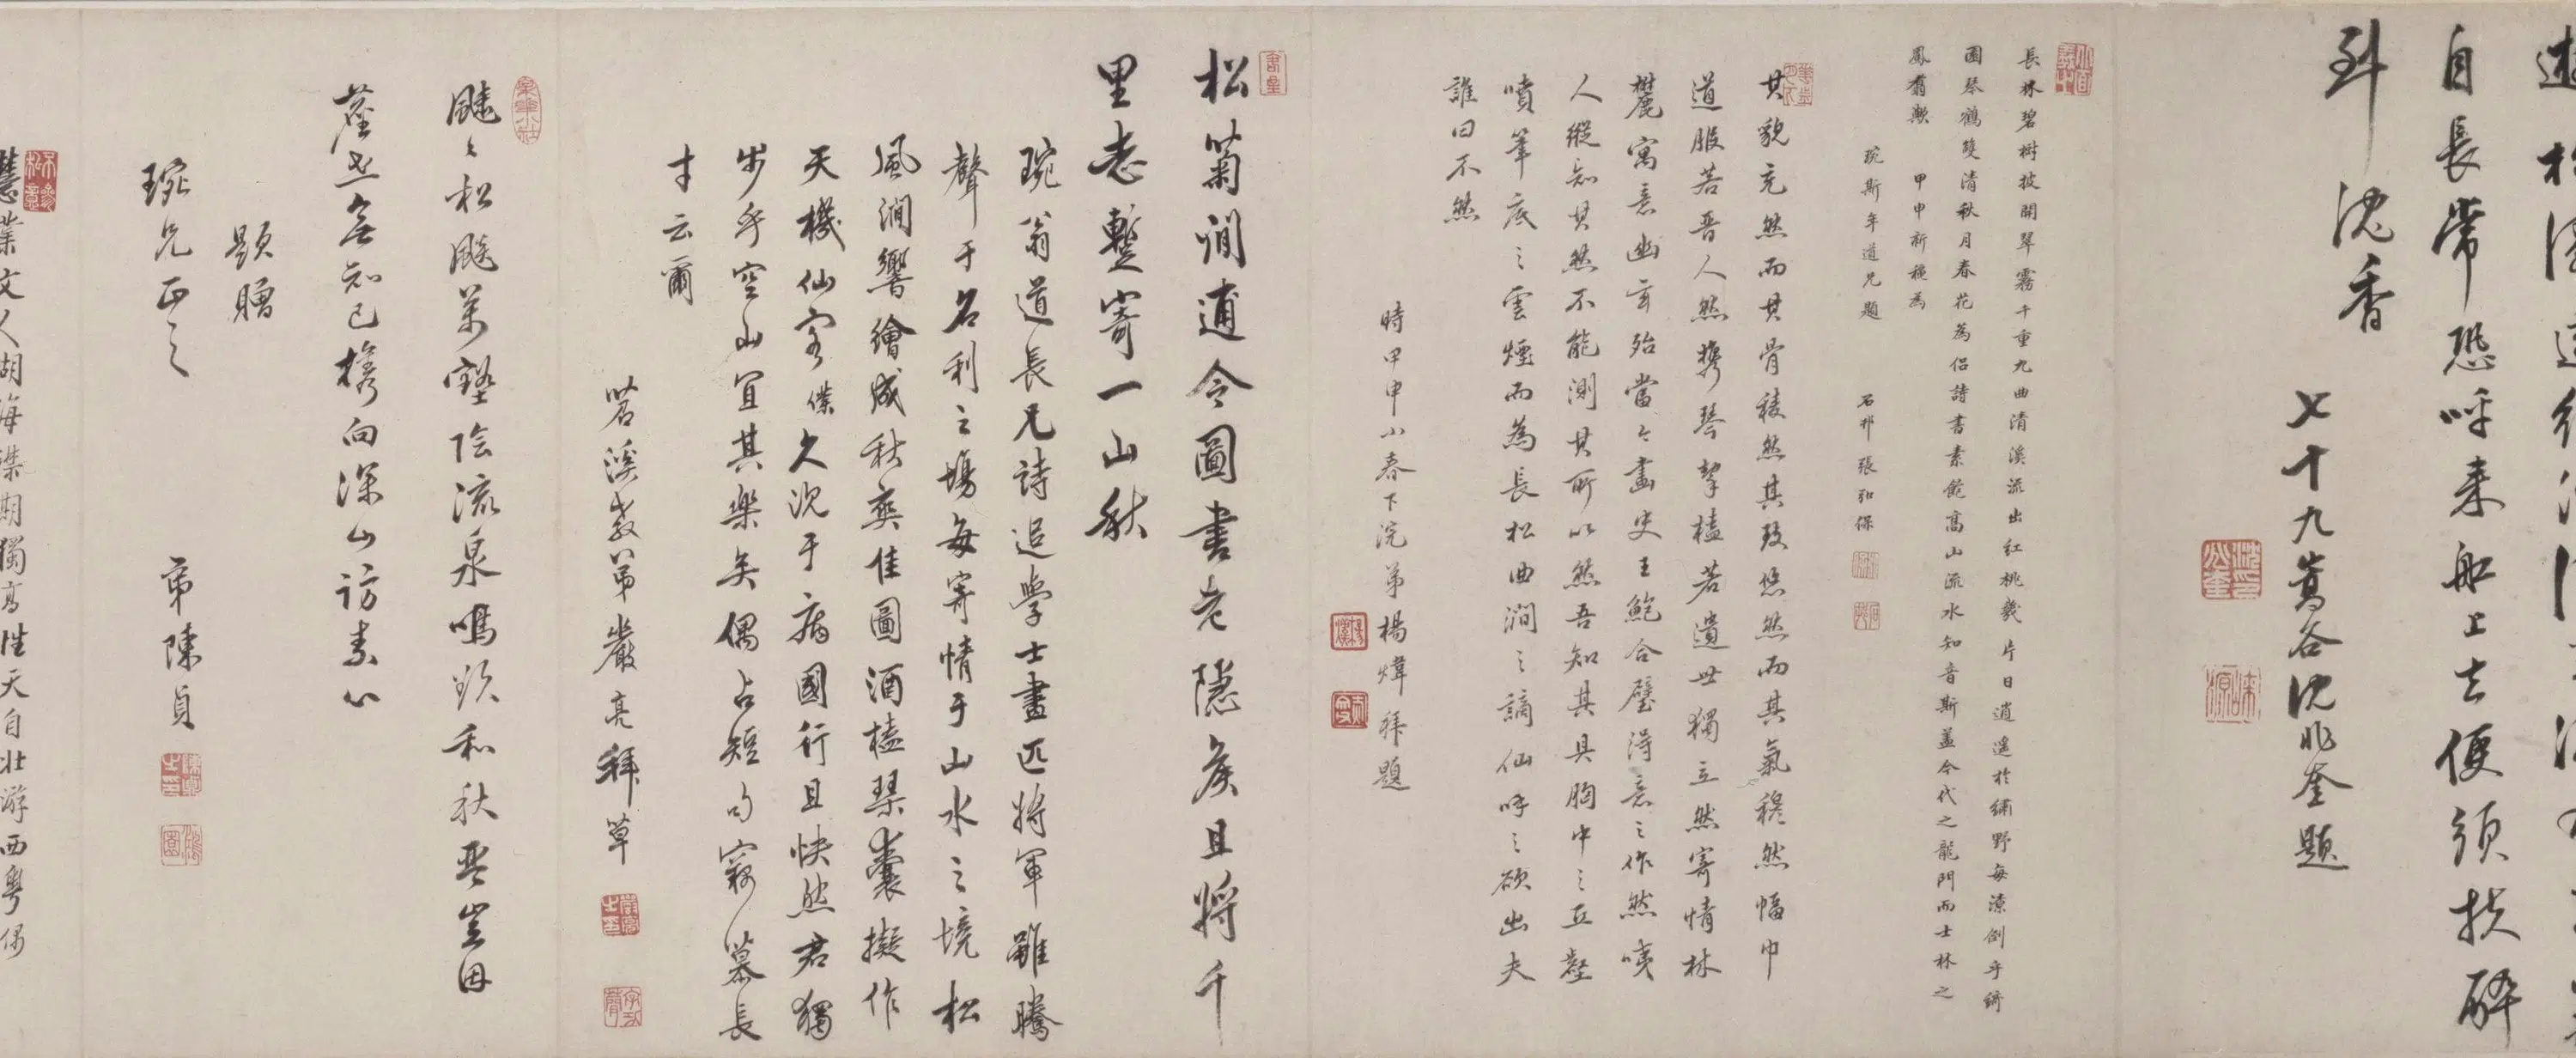 自長常恐呼来船上去便須扶醉
到沈香
七十九嵩谷沈兆奎題
長林碧樹披開翠霧千重九曲清溪流出紅桃幾片日逍遙於綠野每潦倒乎綺
園琴鶴雙清秋月春花為侶詩書素飽高山流水知音斯蓋今代之龍門而士林之
鳳者歟 甲申新秋為
琬斯年道兄題 石邨張弘保
其貌充然而其骨稜然其致悠然而其氣穆然幅巾
道服若晋人然携琴挈榼若遺世獨立然寄情林
麓寓意幽玄殆當今畫史王鮑合璧得意之作然嘆
人縱知其然不能測其所以然吾知其具胸中之丘壑
噴筆底之雲煙而為長松曲澗之謫仙呼之欲出夫
誰曰不然
時甲申小春下浣弟楊煒拜題
松菊閒逋令圖書老隱矦且將千
里志暫寄一山秋
琬翁道長兄詩追學士畫匹將軍雖騰
聲于名利之場每寄情于山水之境松
風澗響繪成秋爽佳圖酒榼琹囊擬作
天機仙客僕久沈于病國行且怏然君獨
步乎空山宜其樂矣偶占短句竊慕長
才云爾
苕溪教弟嚴亮拜草
颼颼松颷萬壑陰流泉鳴玖和秋琴豈因
塵世無知己携向深山訪素心
題贈
琬兄正之
弟陳貞
慧業文人湖海襟期獨高性天自壯游西粤偶